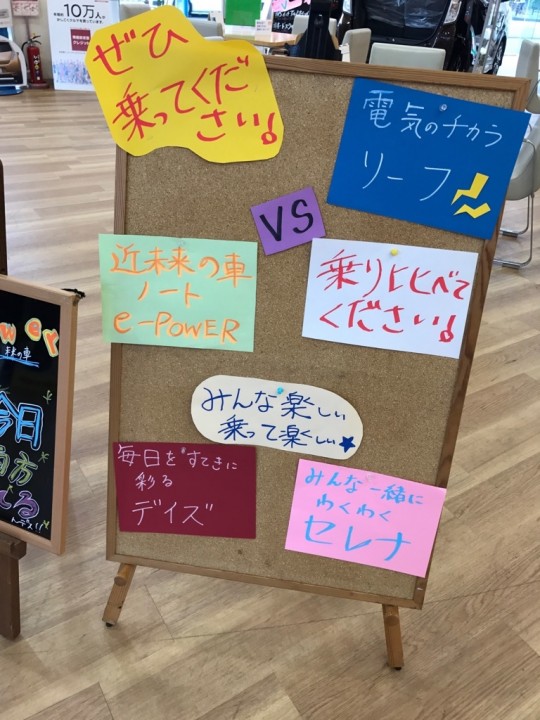 ぜひ
乗ってくだ
さい!
電気のチカラ
リーフ
VS
近未来の車
ノート
e-POWER
乗りヒヒべて
ください!
みんな楽しい
乗って楽しい★
毎日をすてきに
彩る
デイズ
みんな一緒に
わくわく
セレナ
wer
未来の車
今日
10万人